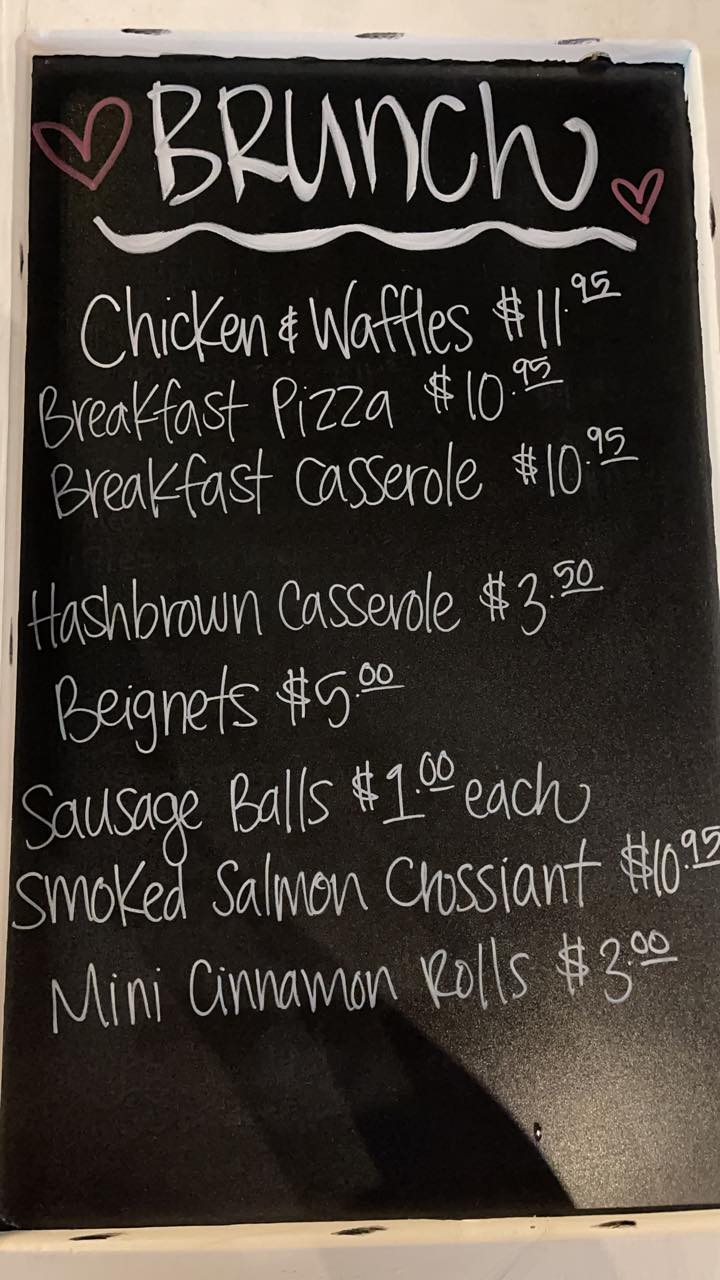 BRUNCH
Chicken & Waffles $11.95
Breakfast Pizza $10.95
Breakfast Casserole $10.95
Hashbrown Casserole $3.50
Beignets $5.00
Sausage Balls $1.00 each
Smoked Salmon Crossiant $10.95
Mini Cinnamon Rolls $3.00